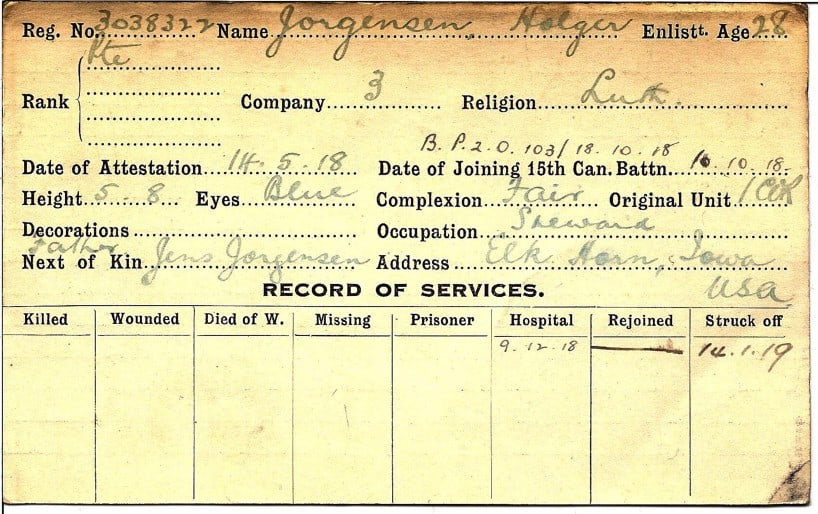 Reg. No. 3038322 Name Jorgensen, Holger Enlistt. Age 28
Pte
Rank Company 3 Religion Luth.
B.P.2.O. 103/18.10.18
Date of Attestation 14.5.18 Date of Joining 15th Can. Battn. 10.10.18.
Height 5-8 Eyes Blue Complexion Fair Original Unit
Decorations Occupation Steward
Father
Next of Kin Jens Jorgensen Address Elk Horn, Iowa
RECORD OF SERVICES. USA
Killed Wounded Died of W. Missing Prisoner Hospital Rejoined Struck off
9.12.18 14.1.19